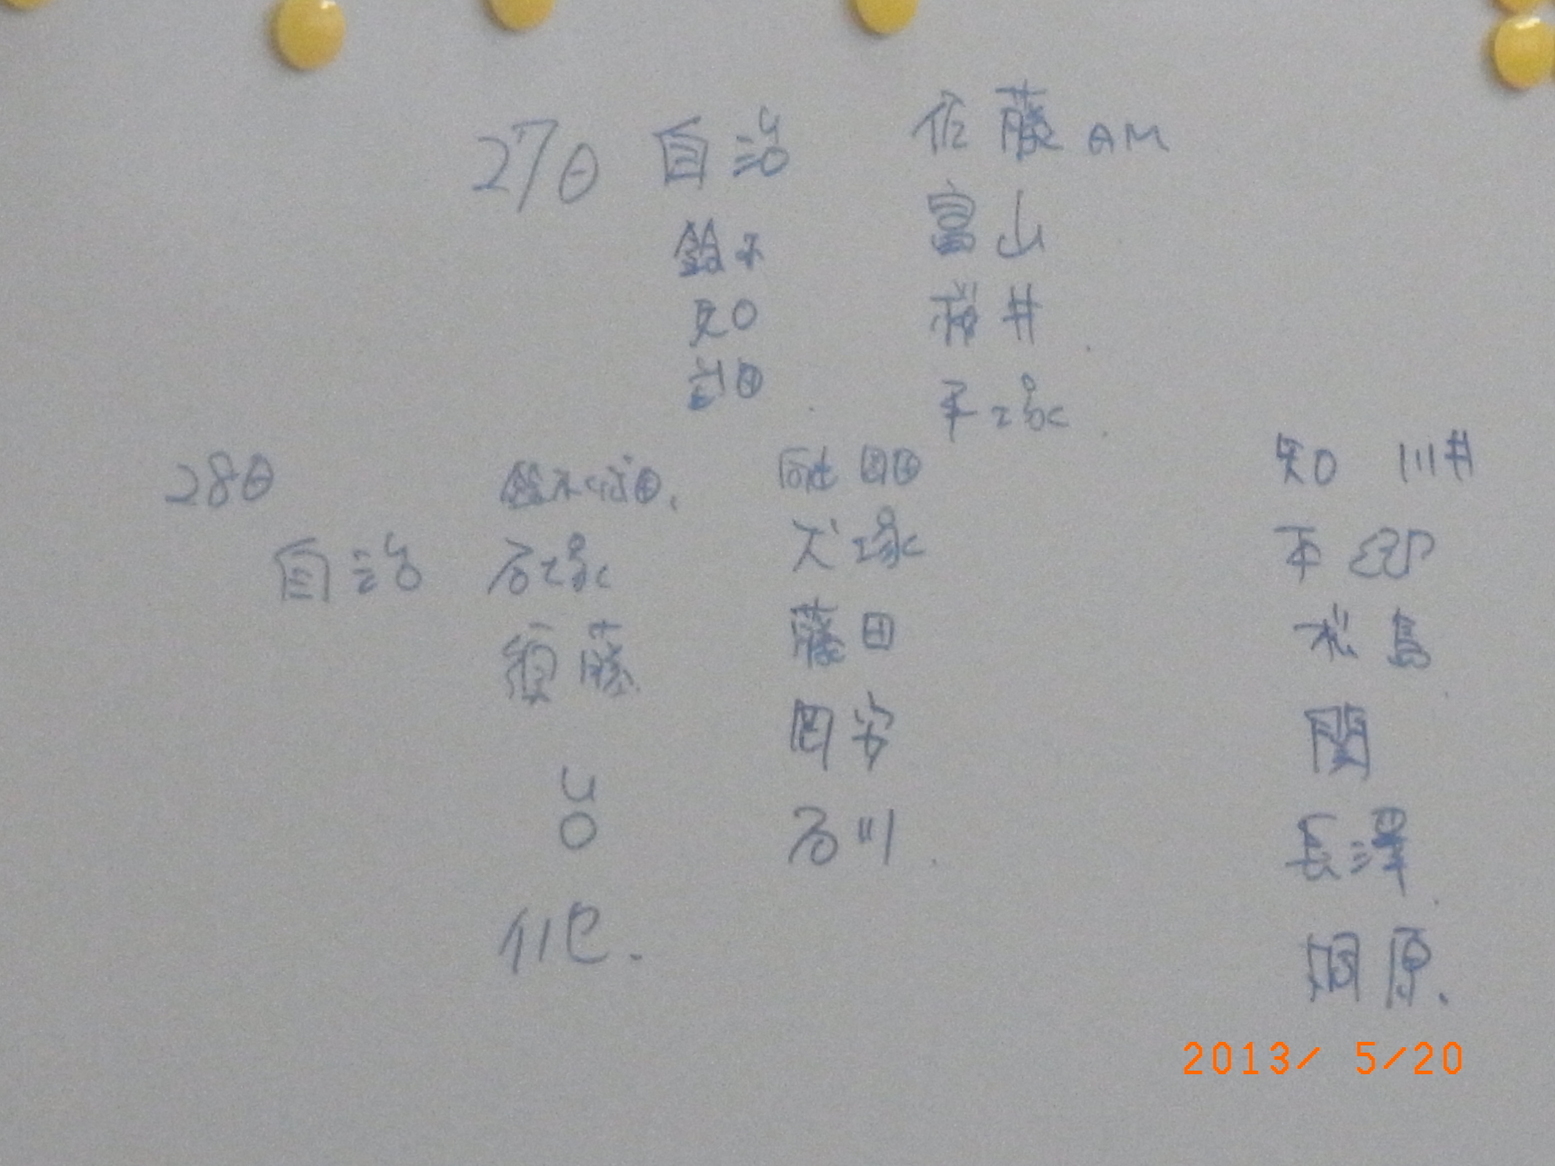 27日 自治 佐藤 AM
鈴木 富山
知 桜井
計田 平塚
28日 鈴木 園田 知 川井
自治 石塚 犬塚 平
須藤 藤田 松島
岡安 関
石川 長澤
他. 桐原.
2013/ 5/20